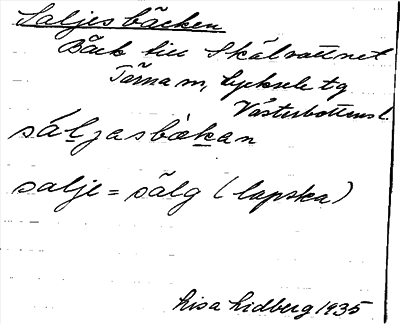 Saljesbäcken
Bäck till Skålvattnet
Tärna sn, Lycksele tg
Västerbottens l.
sáljasbäkan
salje = sälg (lapska)
Lisa Lidberg 1935